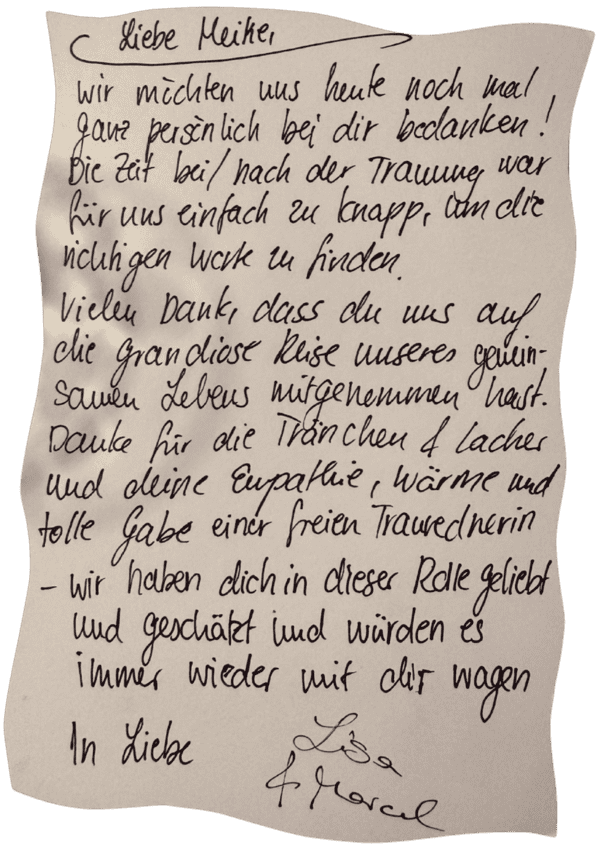 Liebe Meike,
wir möchten uns heute noch mal
ganz persönlich bei dir bedanken!
Die Zeit bei/nach der Trauung war
für uns einfach zu knapp, um die
richtigen Worte zu finden.
Vielen Dank, dass du uns auf
die grandiose Reise unseres gemein-
samen Lebens mitgenommen hast.
Danke für die Tränchen & Lacher
und deine Empathie, Wärme und
tolle Gabe einer freien Traurednerin
- wir haben dich in dieser Rolle geliebt
und geschätzt und würden es
immer wieder mit dir wagen
In Liebe
Lisa
& Marcel